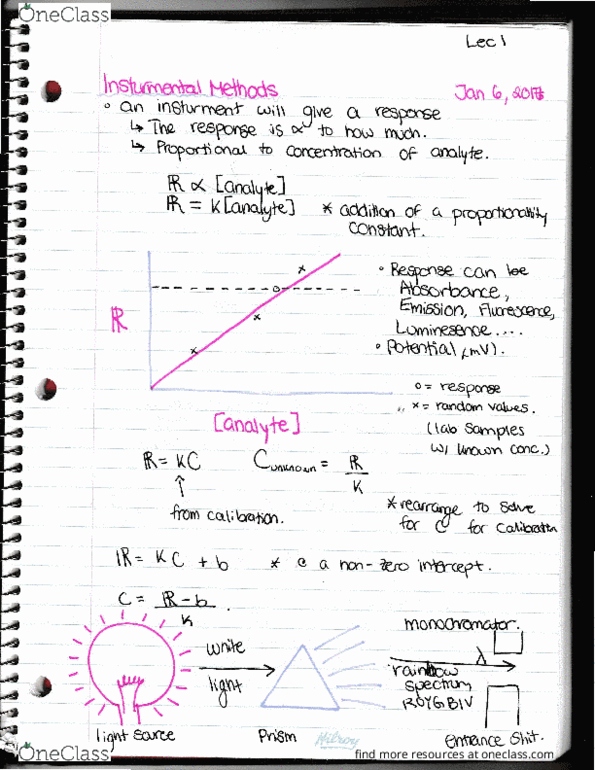 OneClass
Lec 1
Insturmental Methods
Jan 6, 2017
° an insturment will give a response
↳ The response is ∝ to how much.
↳ Proportional to concentration of analyte.
R ∝ [analyte]
R = K[analyte] * addition of a proportionality
constant.
° Response can be
Absorbance,
Emission, Fluorescence,
Luminesence....
• Potential (mV).
R
o = response
x = random values.
(lab samples
w/ known conc.)
[analyte]
R = KC
C unknown = R
K
↑
from calibration.
*rearrange to solve
for C for calibration
R = KC + b * @ a non-zero intercept.
C = R - b
K
monochromator.
white
light
λ
rainbow
spectrum
ROYGBIV
light source
Prism
Hilroy
entrance slit.
find more resources at oneclass.com
OneClass